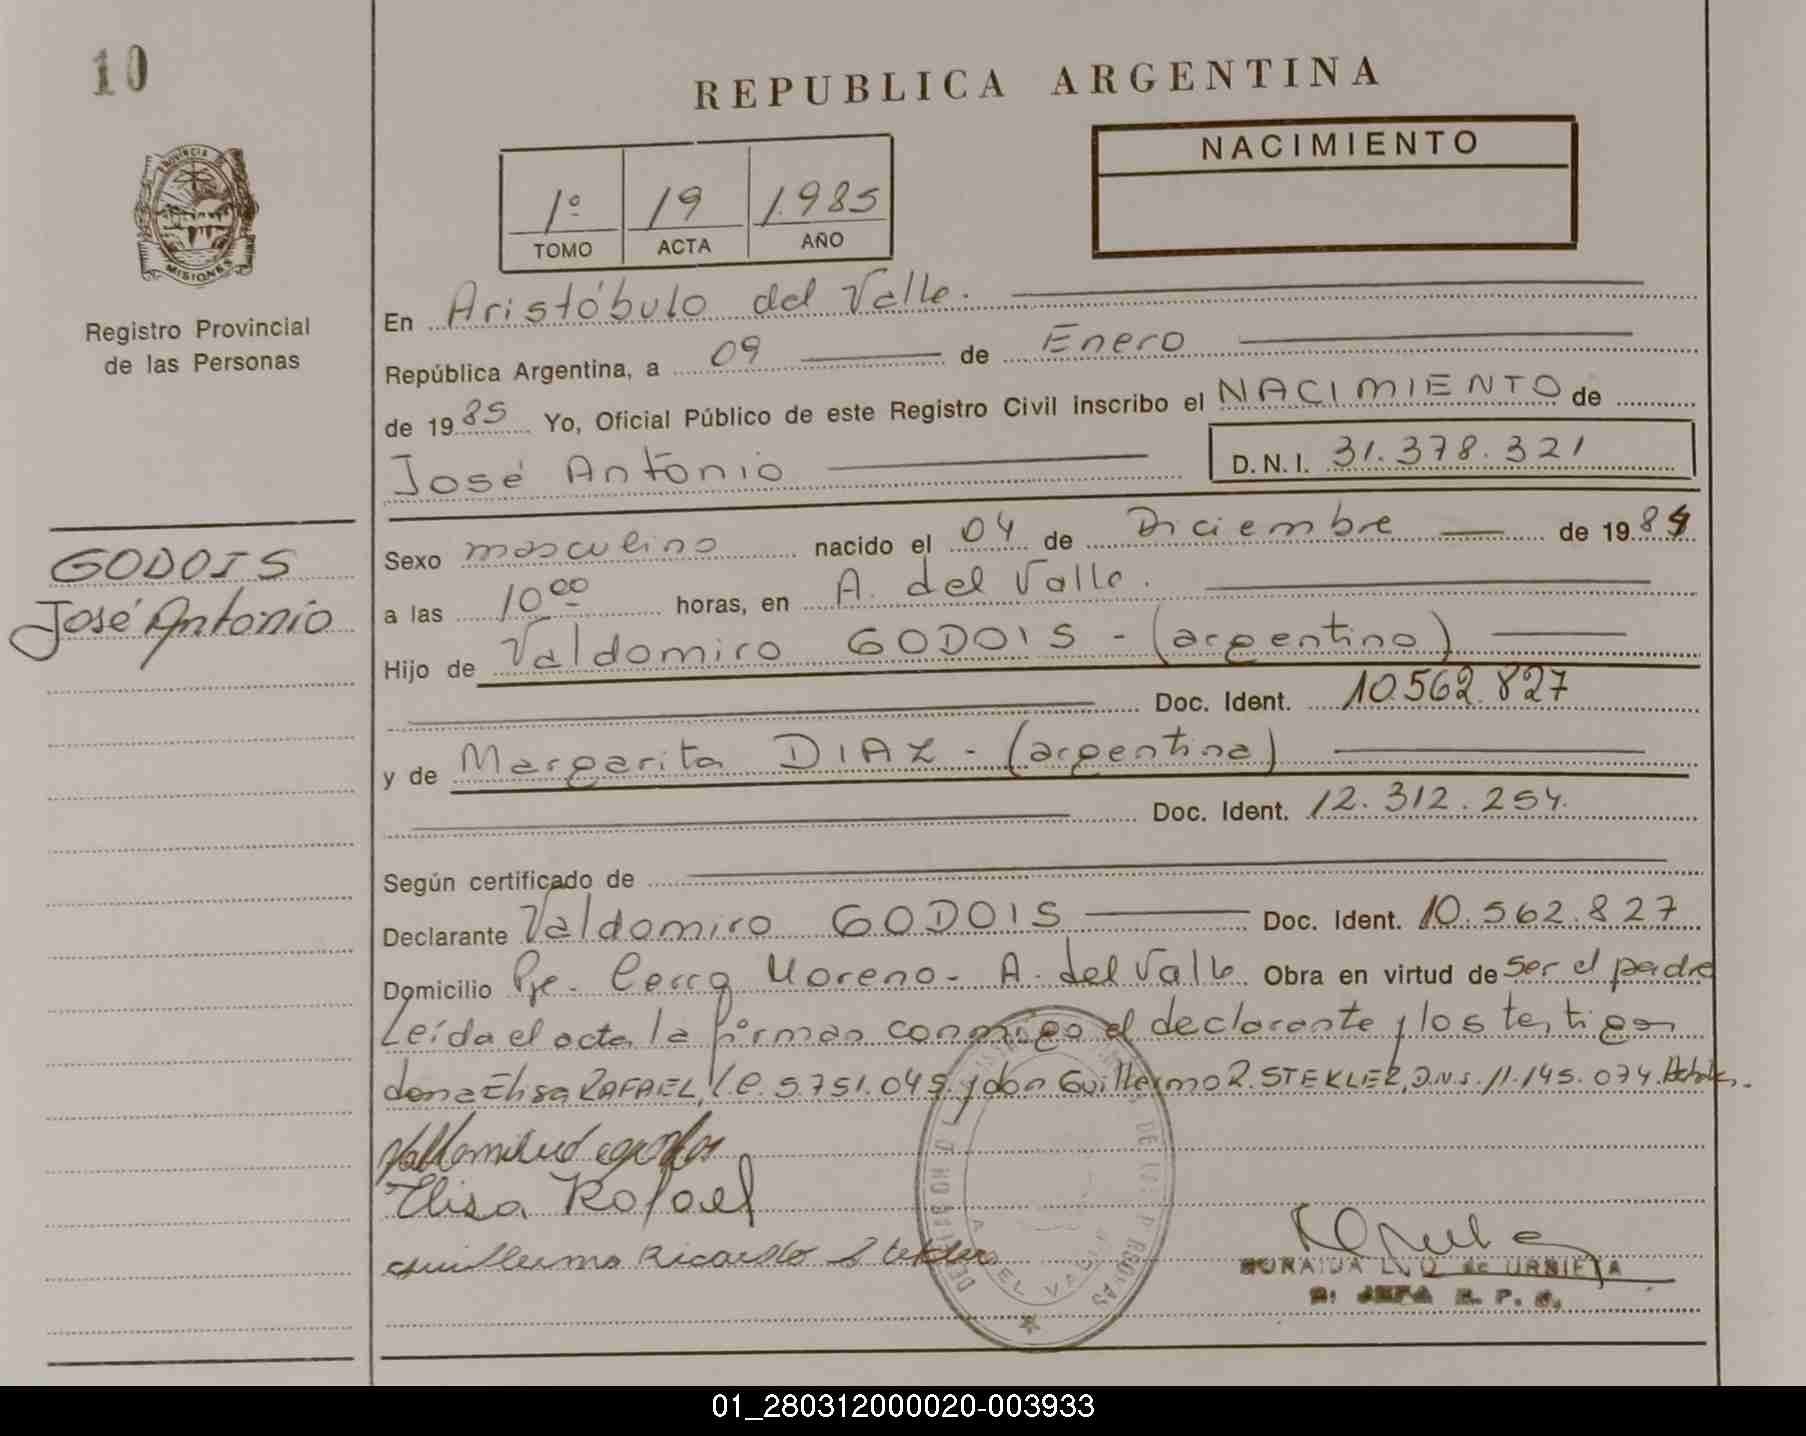 10
REPUBLICA ARGENTINA
NACIMIENTO
1º 19 1985
TOMO ACTA AÑO
PROVINCIA DE
MISIONES
Registro Provincial
de las Personas
En Aristóbulo del Valle.
República Argentina, a 09 de Enero
de 1985 Yo, Oficial Público de este Registro Civil inscribo el NACIMIENTO de
José Antonio D.N.I. 31.378.321
GODOIS
José Antonio
Sexo masculino nacido el 04 de Diciembre de 1984
a las 10 00 horas, en A. del Valle.
Hijo de Valdomiro GODOIS - (argentino)
Doc. Ident. 10.562.827
y de Margarita DIAZ - (argentina)
Doc. Ident. 12.312.254.
Según certificado de
Declarante Valdomiro GODOIS Doc. Ident. 10.562.827
Domicilio Pje. Cerro Moreno - A. del Valle Obra en virtud de ser el padre
Leída el acta la firman conmigo el declarante y los testigos
dona Elisa RAFAEL, L.C. 5.751.049 y don Guillermo R. STEKLER, D.N.I. 11.145.074.
Elisa Rafael
Guillermo Ricardo Stekler
de URRIETA
JEFA R. P.
A. DEL VALLE
01_280312000020-003933